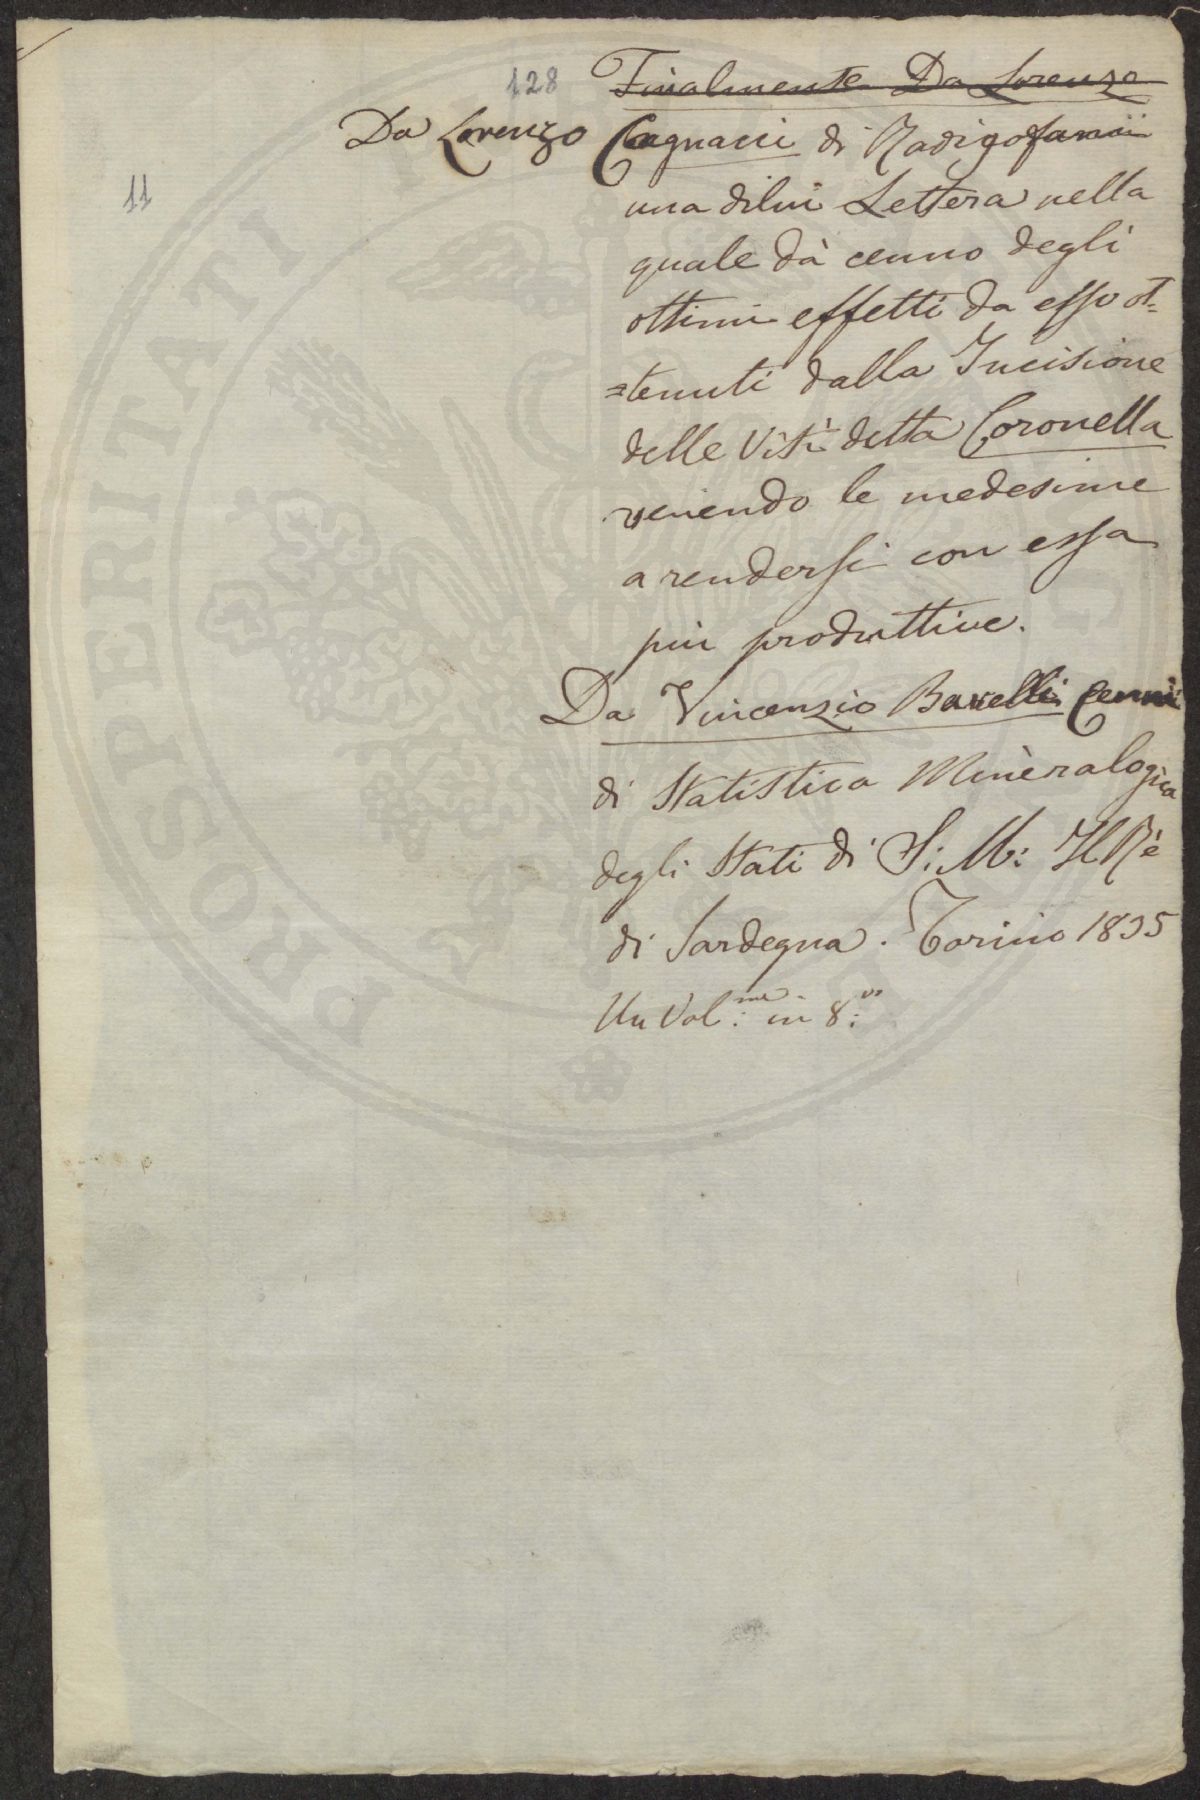 128
~~Finalmente Da Lorenzo~~
Da Lorenzo Cagnacci di Radigofani
11
una di lui Lettera nella
quale dà cenno degli
ottimi effetti da esso ot=
=tenuti dalla Incisione
delle Viti detta Coronella
venendo le medesime
a rendersi con essa
più produttive.
Da Vincenzio Barelli Cenni
di Statistica Mineralogica
degli Stati di S: M: Il Rè
di Sardegna. Torino 1835
Un Vol:me in 8:vo
PROSPERITATI